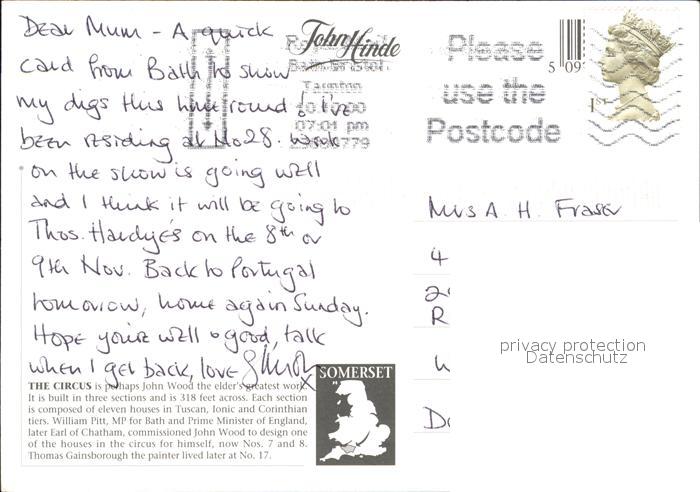 Dear Mum - A quick
card from Bath to show
my digs this time round! I've
been residing at No 28. Work
on the show is going well
and I think it will be going to
Thos. Hardye's on the 8th or
9th Nov. Back to Portugal
tomorrow, home again Sunday.
Hope you're well & good, talk
when I get back, love
x
THE CIRCUS is perhaps John Wood the elder's greatest work.
It is built in three sections and is 318 feet across. Each section
is composed of eleven houses in Tuscan, Ionic and Corinthian
tiers. William Pitt, MP for Bath and Prime Minister of England,
later Earl of Chatham, commissioned John Wood to design one
of the houses in the circus for himself, now Nos. 7 and 8.
Thomas Gainsborough the painter lived later at No. 17.
SOMERSET
John Hinde
Taunton
07:01 pm
Please
use the
Postcode
5 09
1ST
Mrs A. H. Fraser
4
2
R
privacy protection
Datenschutz